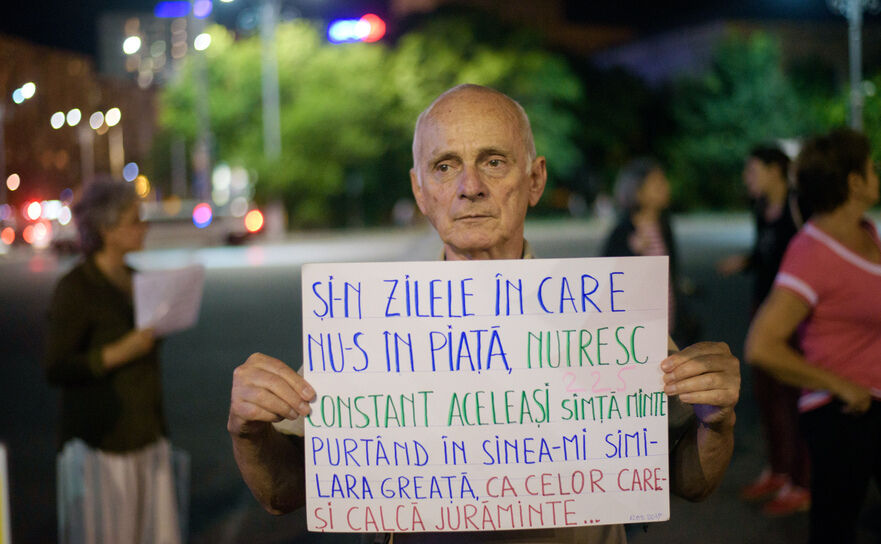 ȘI-N ZILELE ÎN CARE
NU-S ÎN PIAȚĂ, NUTRESC
225
CONSTANT ACELEAȘI SÎMȚĂMINTE
PURTÂND ÎN SINEA-MI SIMI-
LARA GREAȚĂ, CA CELOR CARE-
ȘI CALCĂ JURĂMINTE...